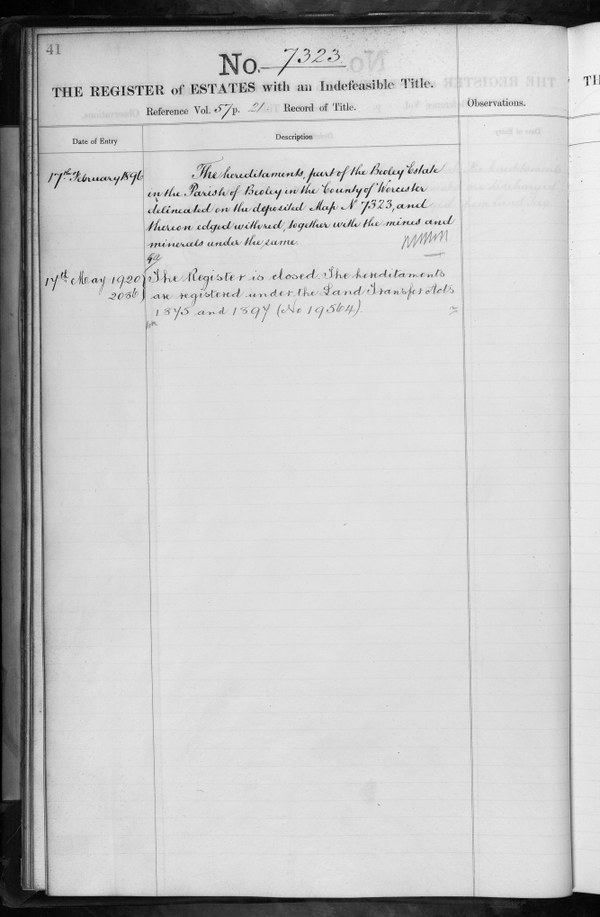 41
No. 7323.
THE REGISTER of ESTATES with an Indefeasible Title.
Reference Vol. 57 p. 21 Record of Title.
Observations.
Date of Entry
Description
17th February 1896
The hereditaments, part of the Beoley Estate
in the Parish of Beoley in the County of Worcester
delineated on the deposited Map No 7323, and
thereon edged with red, together with the mines and
minerals under the same.
17th May 1920
The Register is closed. The hereditaments
are registered under the Land Transfer Acts
1875 and 1897 (No 19564).